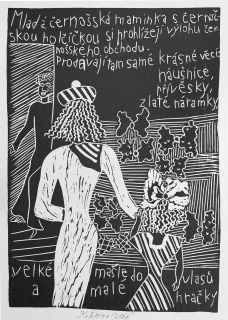 Mladá černošská maminka s černoš-
skou holčičkou si prohlížejí výlohu čer-
nošského obchodu.
Prodávají tam samé krásné věci:
náušnice,
přívěsky,
zlaté náramky,
velké mašle do vlasů
a malé hračky